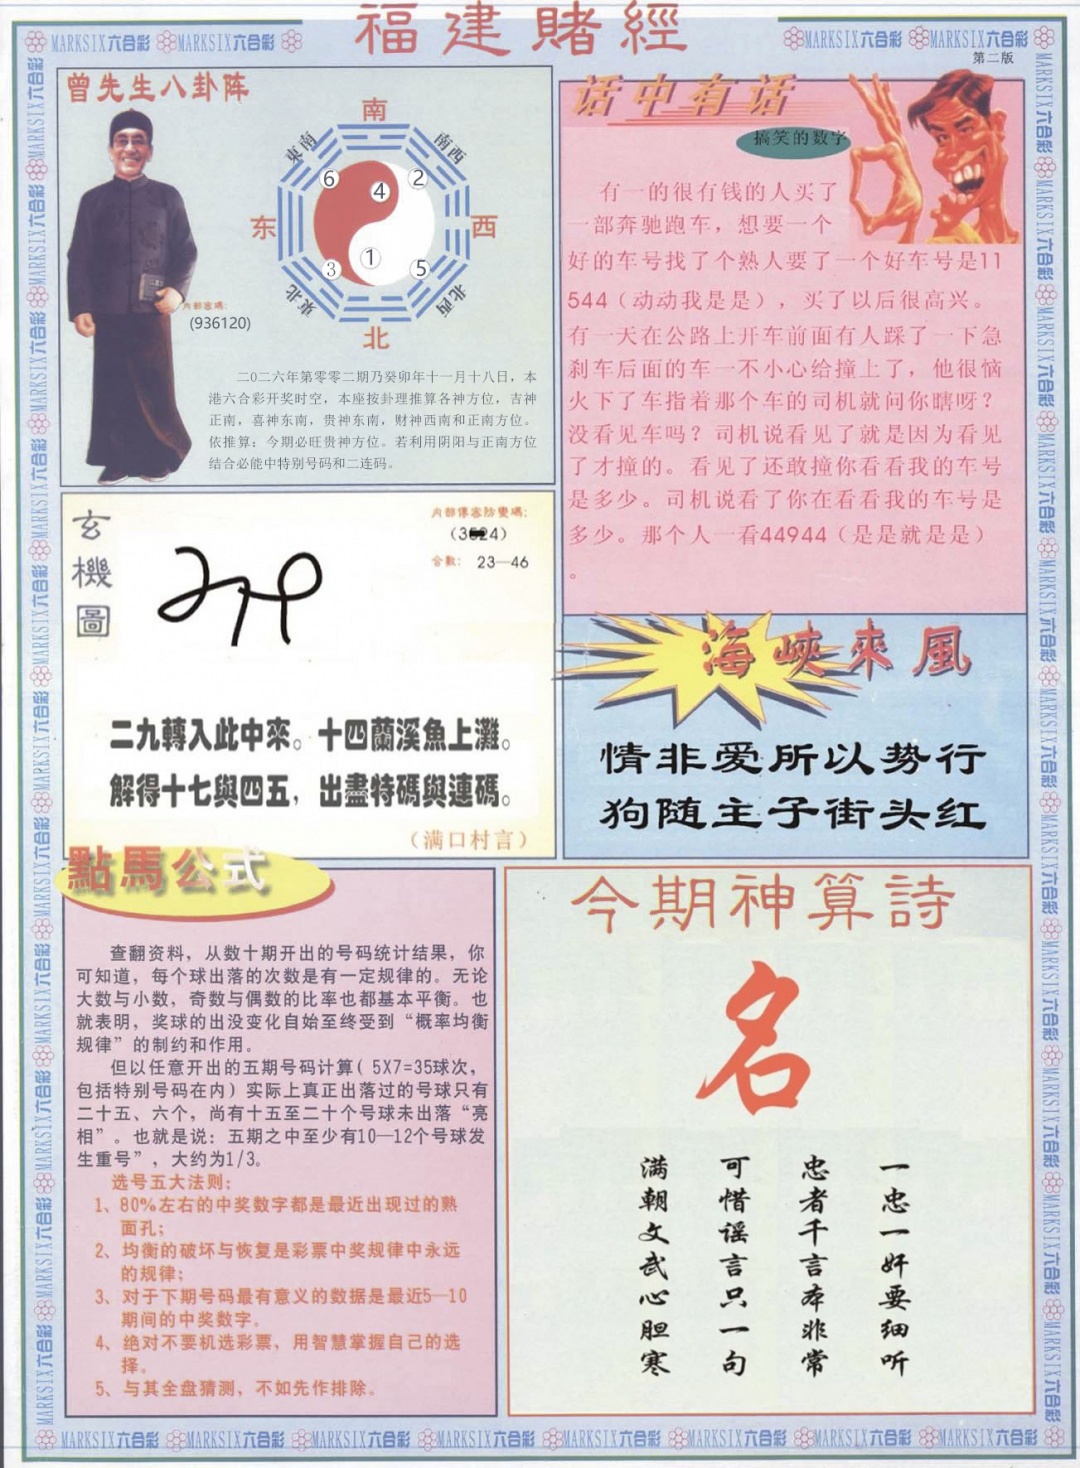 福建賭經
MARKSIX六合彩 MARKSIX六合彩
MARKSIX六合彩 MARKSIX六合彩
第二版
曾先生八卦阵
南
東南
南西
6
4
2
东
西
3
1
5
東北
北西
北
内部密碼:
(936120)
二〇二六年第零零二期乃癸卯年十一月十八日，本
港六合彩开奖时空，本座按卦理推算各神方位，吉神
正南，喜神东南，贵神东南，财神西南和正南方位。
依推算：今期必旺贵神方位。若利用阴阳与正南方位
结合必能中特别号码和二连码。
话中有话
搞笑的数字
有一的很有钱的人买了
一部奔驰跑车，想要一个
好的车号找了个熟人要了一个好车号是11
544（动动我是是），买了以后很高兴。
有一天在公路上开车前面有人踩了一下急
刹车后面的车一不小心给撞上了，他很恼
火下了车指着那个车的司机就问你瞎呀？
没看见车吗？司机说看见了就是因为看见
了才撞的。看见了还敢撞你看看我的车号
是多少。司机说看了你在看看我的车号是
多少。那个人一看44944（是是就是是）
。
玄機圖
内部傳密防變碼:
合數: 23—46
二九轉入此中來。十四蘭溪魚上灘。
解得十七與四五，出盡特碼與連碼。
（满口村言）
海峽來風
情非爱所以势行
狗随主子街头红
點馬公式
查翻资料，从数十期开出的号码统计结果，你
可知道，每个球出落的次数是有一定规律的。无论
大数与小数，奇数与偶数的比率也都基本平衡。也
就表明，奖球的出没变化自始至终受到“概率均衡
规律”的制约和作用。
但以任意开出的五期号码计算( 5X7=35球次，
包括特别号码在内）实际上真正出落过的号球只有
二十五、六个，尚有十五至二十个号球未出落“亮
相”。也就是说：五期之中至少有10—12个号球发
生重号”，大约为1/3。
选号五大法则：
1、80%左右的中奖数字都是最近出现过的熟
面孔；
2、均衡的破坏与恢复是彩票中奖规律中永远
的规律；
3、对于下期号码最有意义的数据是最近5—10
期间的中奖数字。
4、绝对不要机选彩票，用智慧掌握自己的选
择。
5、与其全盘猜测，不如先作排除。
今期神算詩
名
一忠一奸要细听
忠者千言本非常
可惜谣言只一句
满朝文武心胆寒
MARKSIX六合彩 MARKSIX六合彩 MARKSIX六合彩 MARKSIX六合彩 MARKSIX六合彩 MARKSIX六合彩 MARKSIX六合彩 MARKSIX六合彩